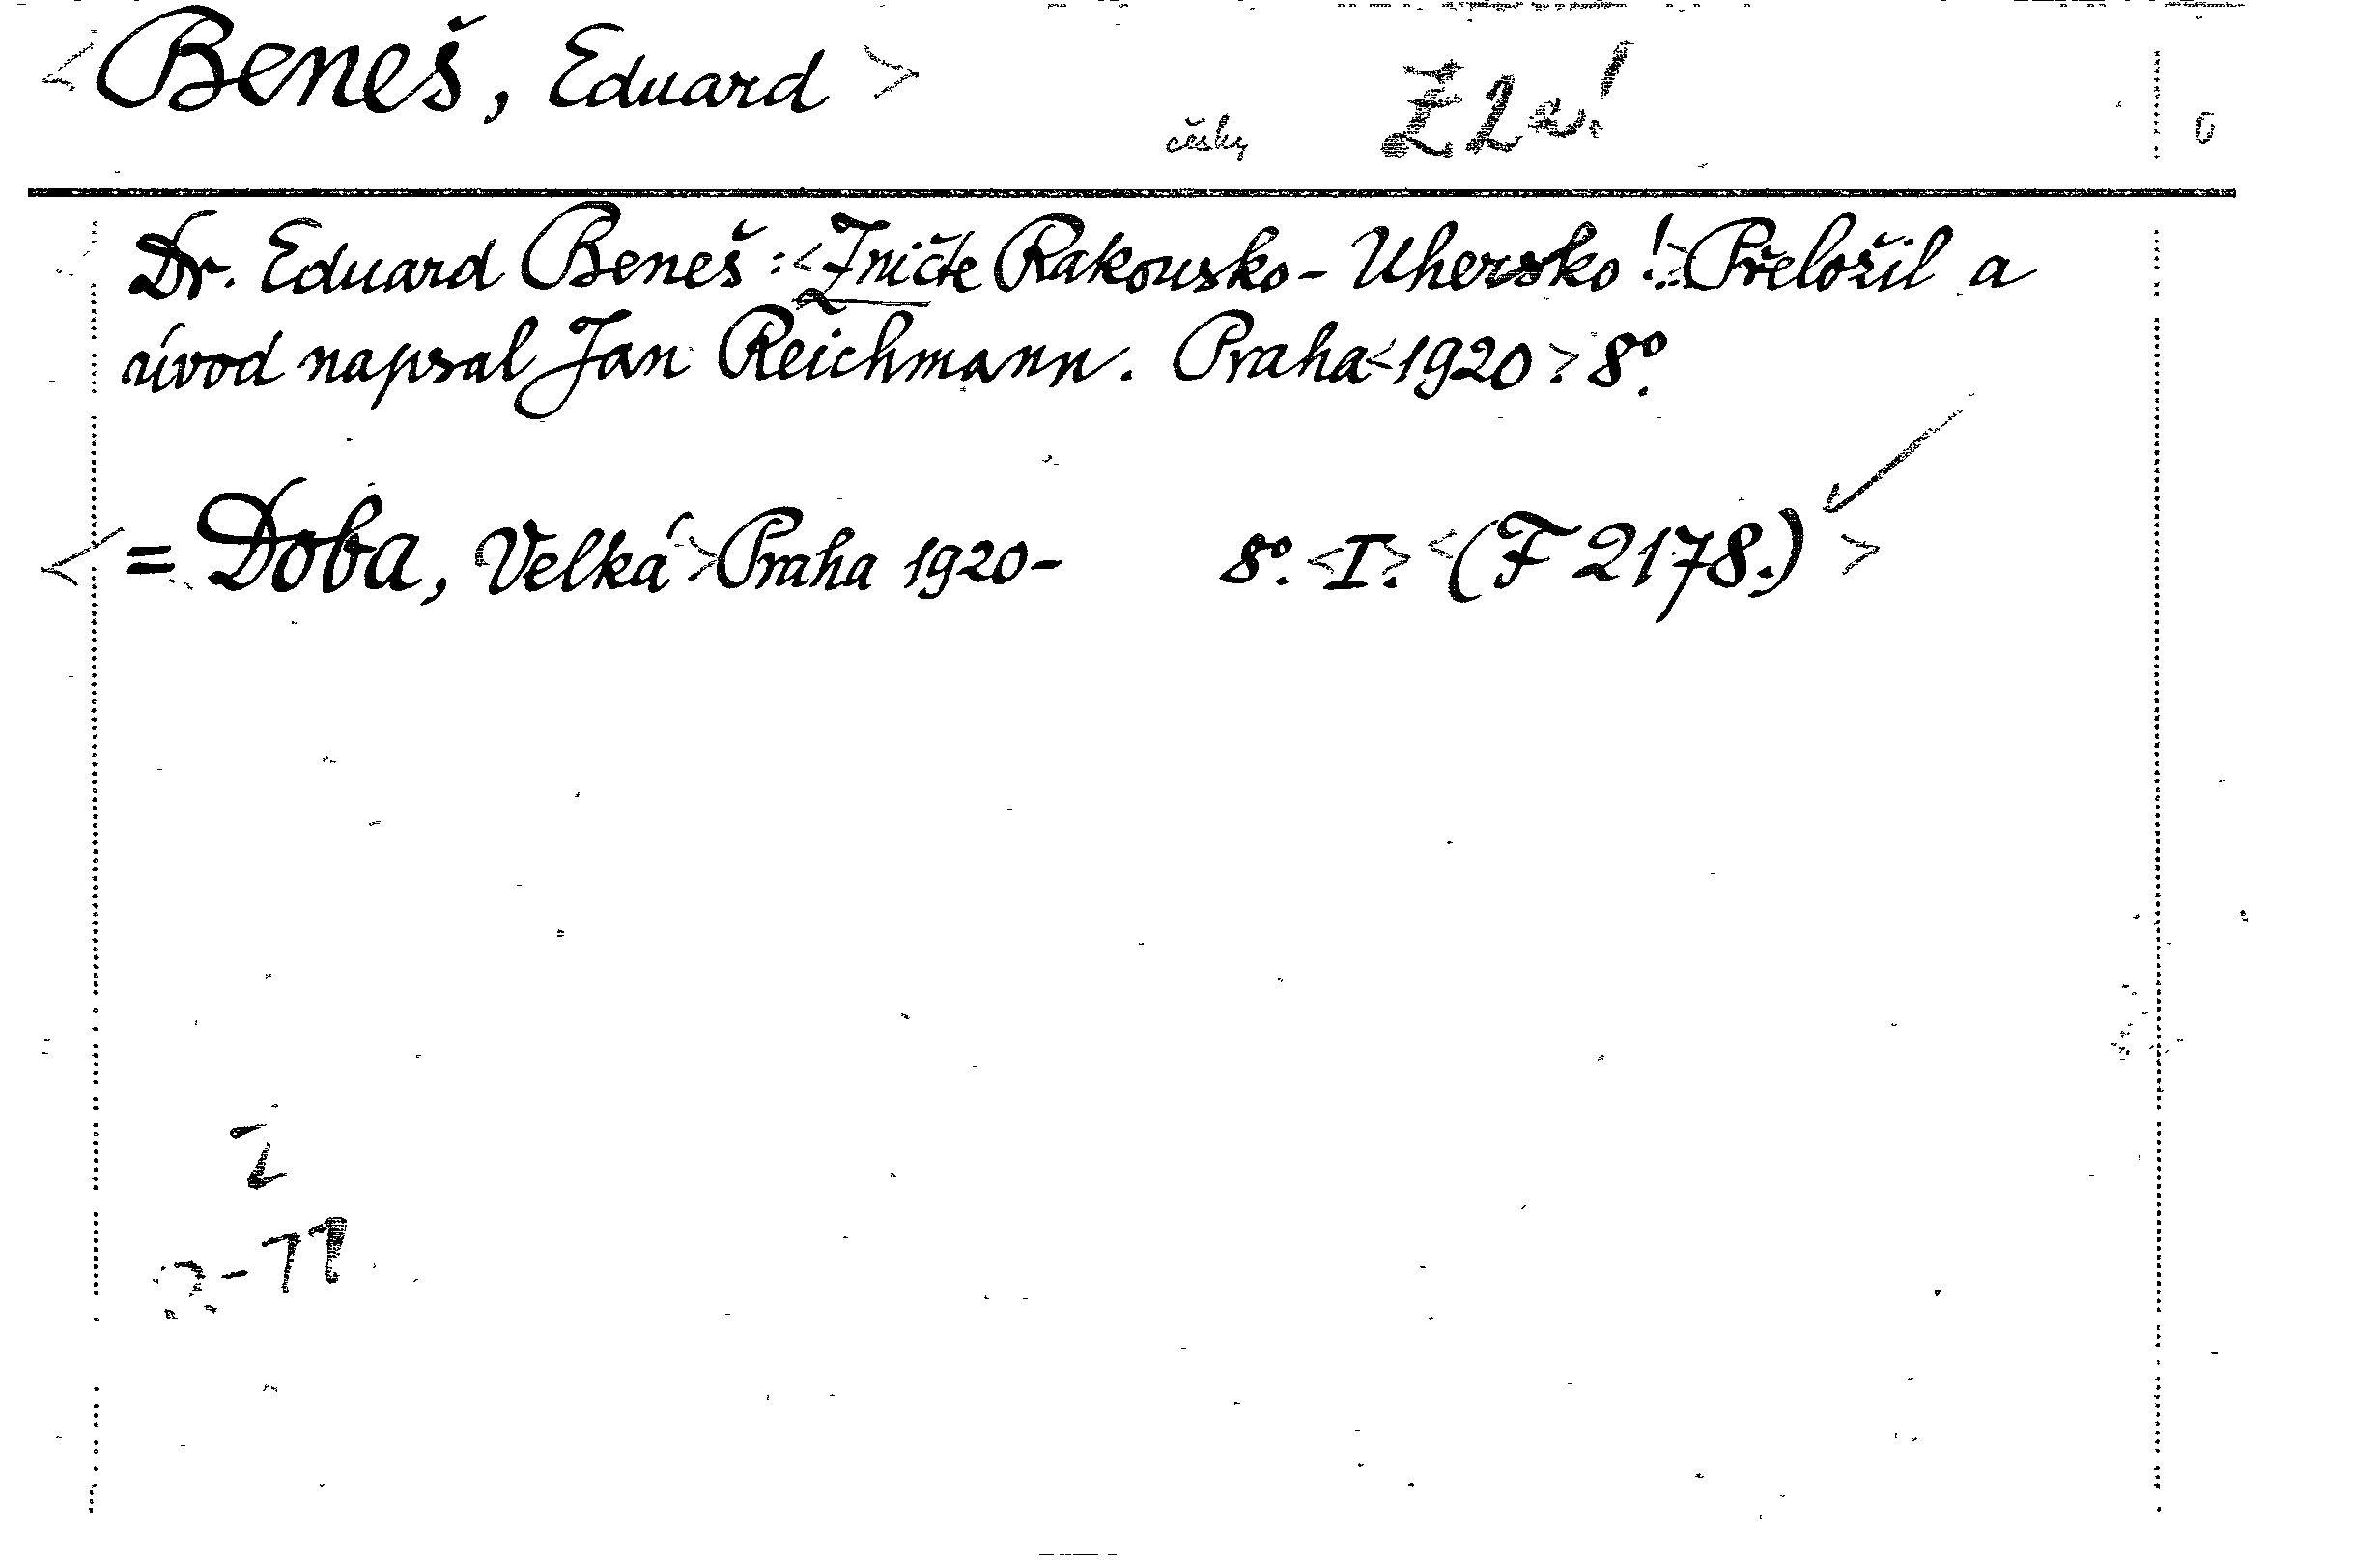 <Beneš, Eduard>
česky
Dr. Eduard Beneš: <Zničte Rakousko-Uhersko!> Přeložil a
úvod napsal Jan Reichmann. Praha <1920> 8º.
<= Doba, Velká> Praha 1920- 8º. <I.> <(F 2178.)>